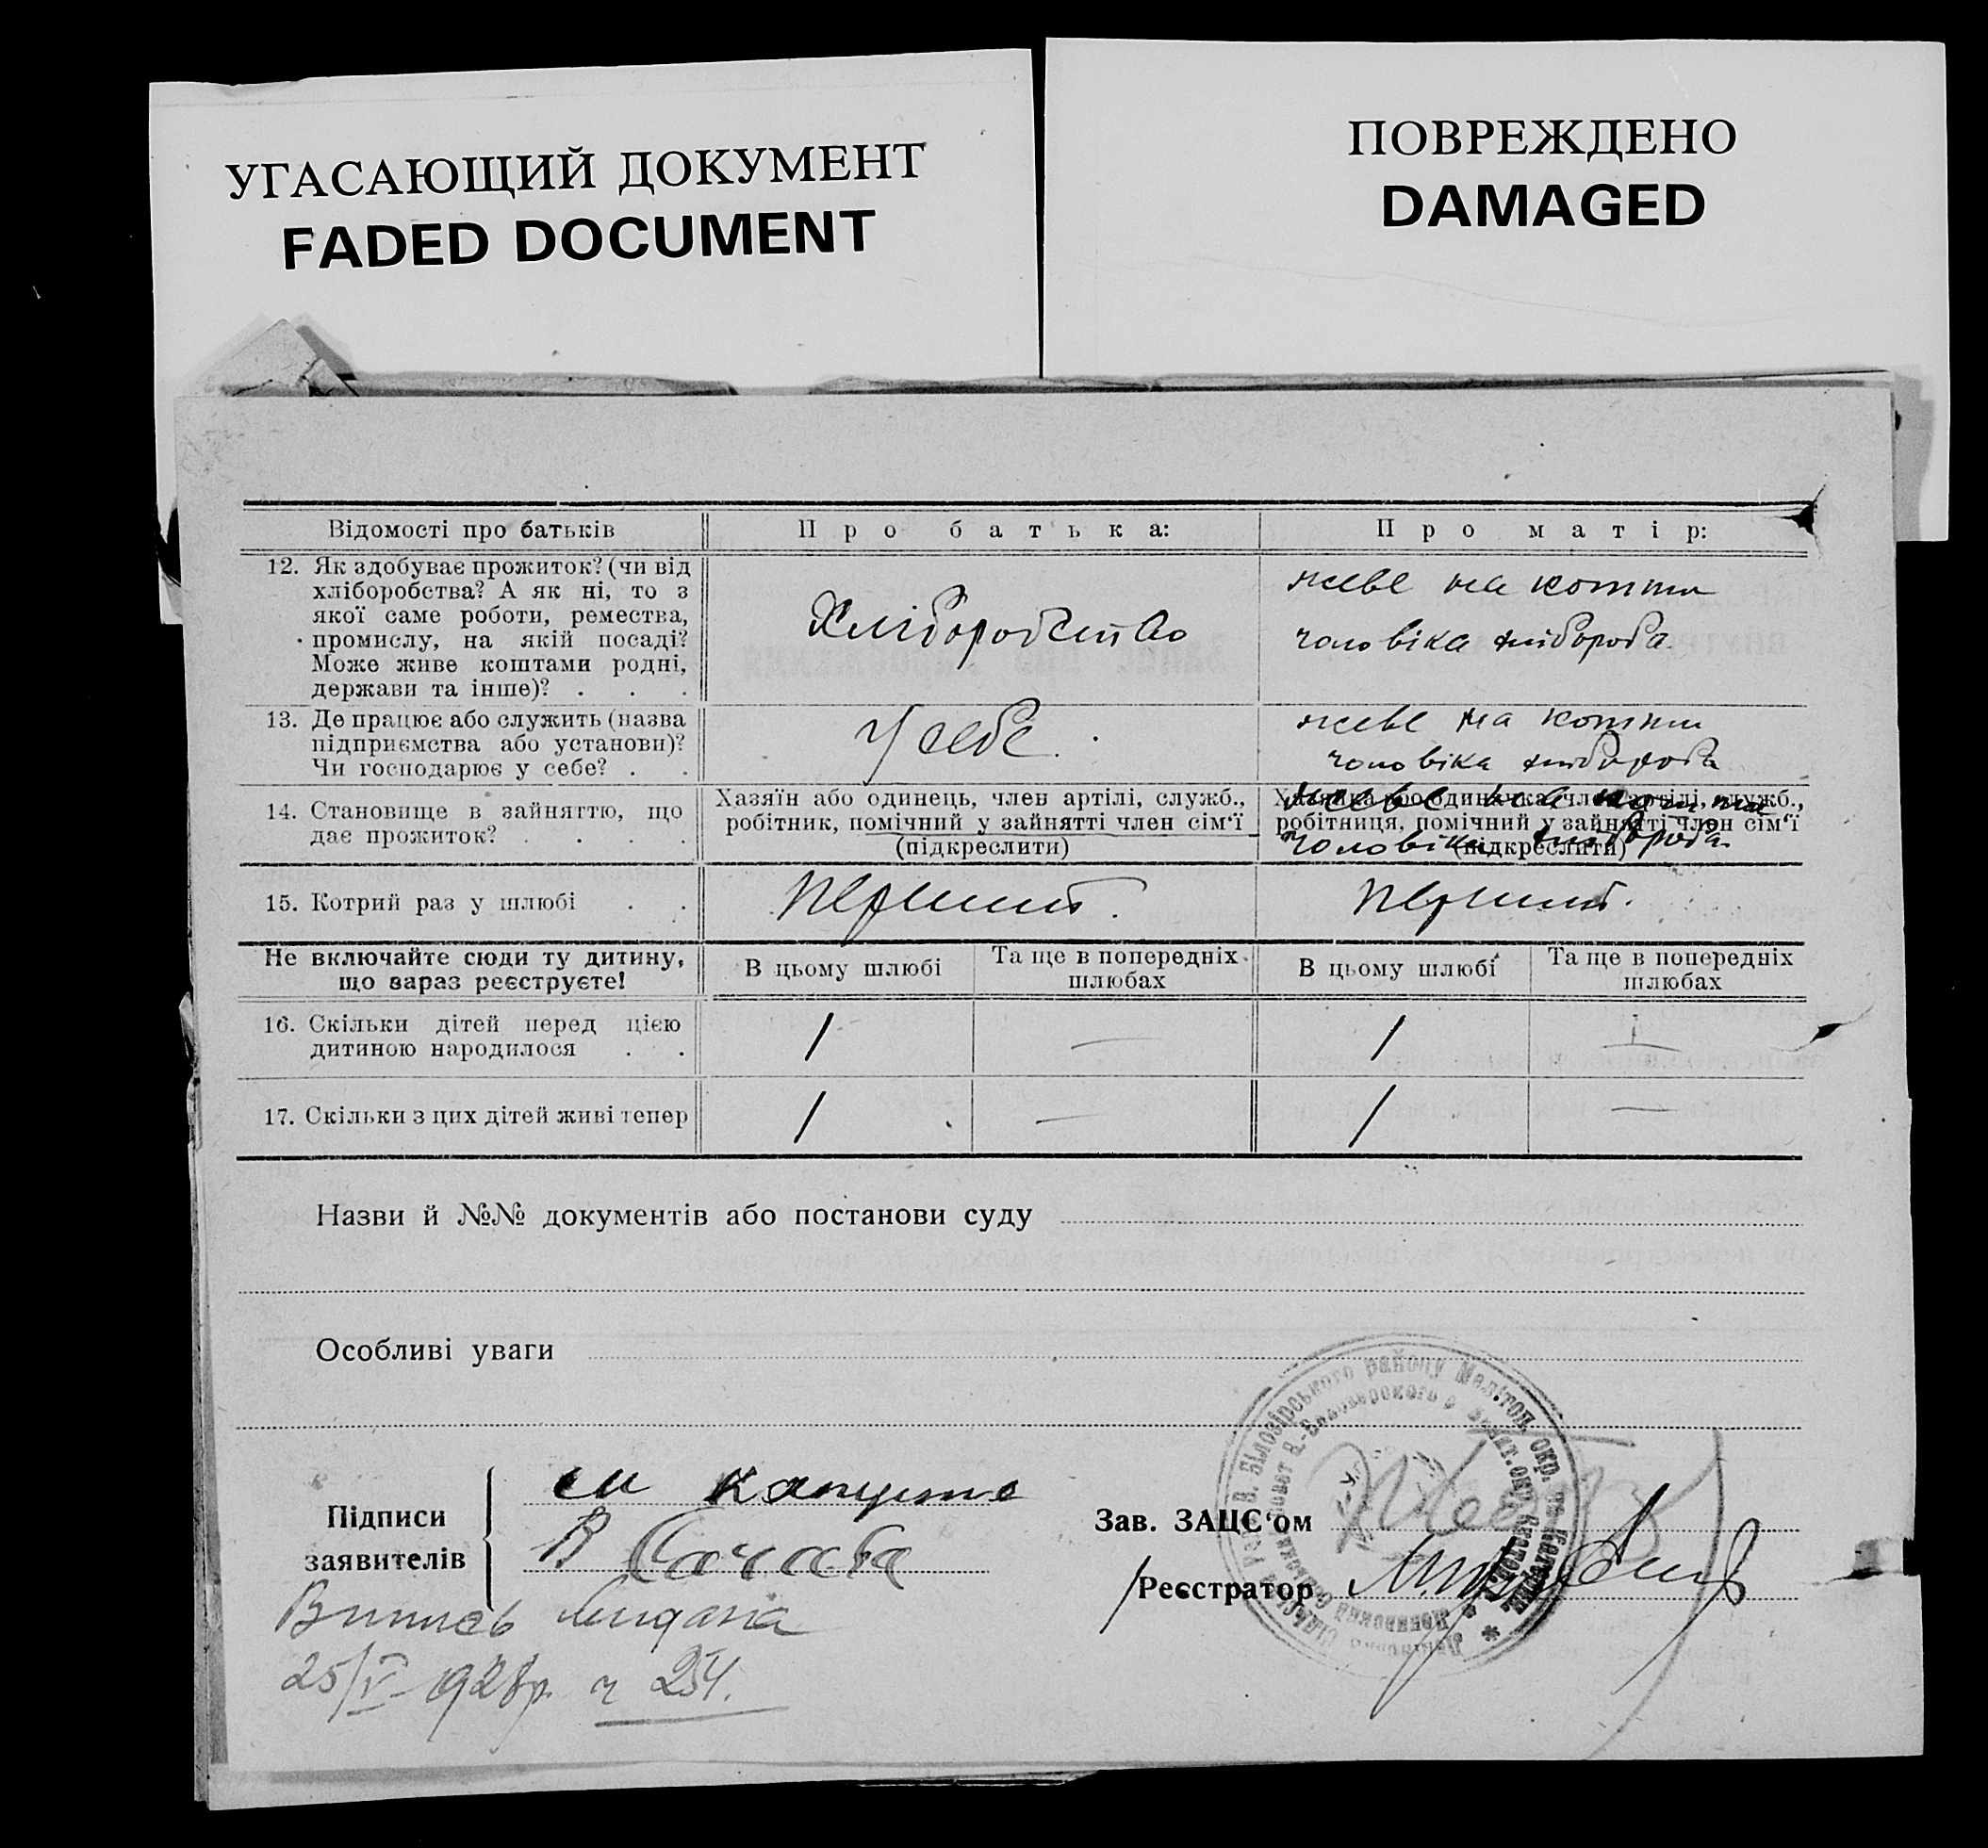 УГАСАЮЩИЙ ДОКУМЕНТ
FADED DOCUMENT
ПОВРЕЖДЕНО
DAMAGED
Відомості про батьків
Про батька:
Про матір:
12. Як здобуває прожиток? (чи від
хліборобства? А як ні, то з
якої саме роботи, ремества,
промислу, на якій посаді?
Може живе коштами родні,
держави та інше)? . . .
Хліборобство
живе на кошти
чоловіка хлібороба
13. Де працює або служить (назва
підприємства або установи)?
Чи господарює у себе? . .
У себе.
живе на кошти
чоловіка хлібороба
14. Становище в зайняттю, що
дає прожиток? . . . .
Хазяїн або одинець, член артілі, служб.,
робітник, помічний у зайнятті член сім‘ї
(підкреслити)
робітниця, помічний у зайнятті член сім‘ї
(підкреслити)
живе на кошти
чоловіка хлібороба
15. Котрий раз у шлюбі . .
Перший.
Перший.
Не включайте сюди ту дитину,
що зараз реєструєте!
В цьому шлюбі
Та ще в попередніх
шлюбах
В цьому шлюбі
Та ще в попередніх
шлюбах
16. Скільки дітей перед цією
дитиною народилося . .
1
—
1
—
17. Скільки з цих дітей живі тепер
1
—
1
—
Назви й №№ документів або постанови суду
Особливі уваги
Підписи
заявителів
Капуста
В
Зав. ЗАЦС‘ом
Реєстратор
Білозірського району Меліт‌оп. окр.
Випись видана
25/V-1928р. ч 254.